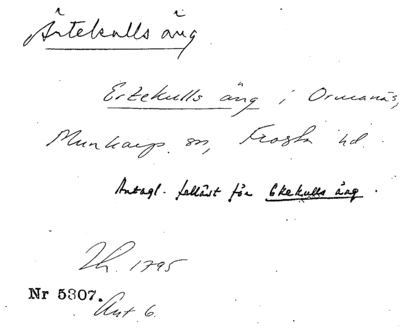 Ärtekulls äng
Ertekulls äng i Ormanäs,
Munkarp sn, Frosta hd.
Antagl. felläst för Ekekulls äng.
Lh. 1795
Nr 5307.
Akt 6.